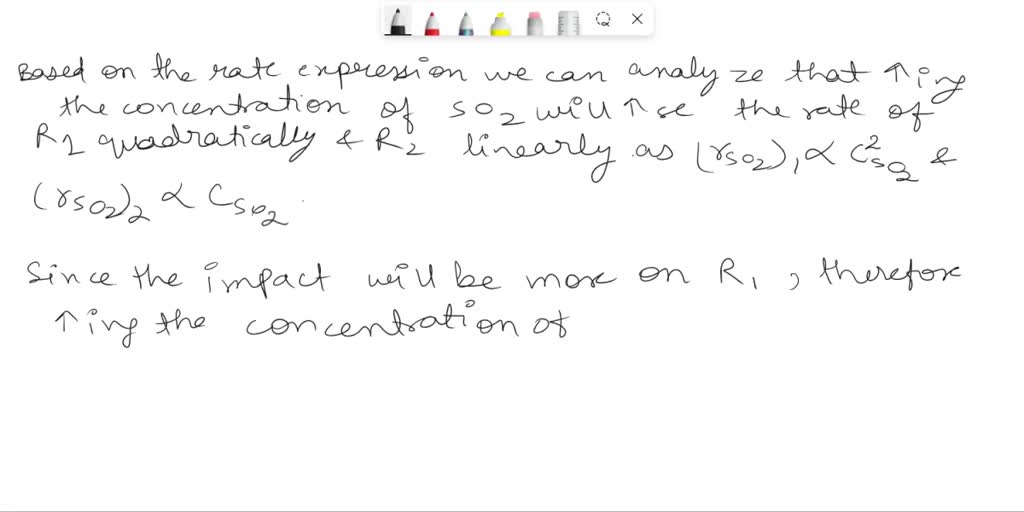 Based on the rate expression we can analyze that ↑ing
the concentration of SO2 will ↑se the rate of
R1 quadratically & R2 linearly as (rSO2)1 ∝ C²SO2 &
(rSO2)2 ∝ CSO2
Since the impact will be more on R1, therefore
↑ing the concentration of